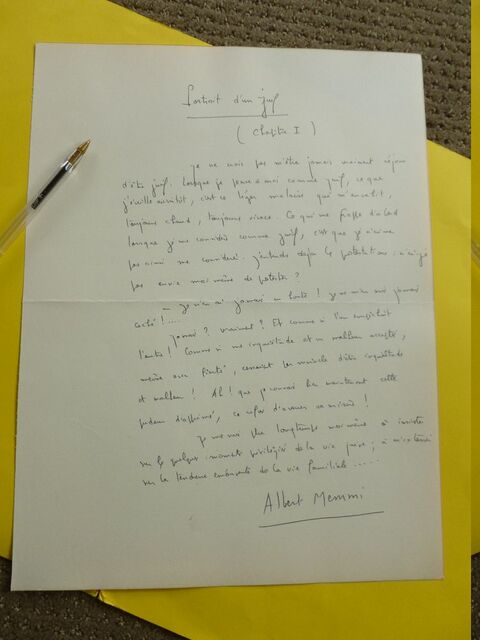 Portrait d'un juif
( Chapitre I )
Je ne crois pas m'être jamais vraiment réjoui
d'être juif. Lorsque je pense à moi comme juif, ce que
j'éveille aussitôt, c'est ce léger malaise qui m'envahit,
toujours chaud, toujours vivace. Ce qui me frappe d'abord
lorsque je me considère comme juif, c'est que je n'aime
pas ainsi me considérer. J'entends déjà les protestations : n'ai-je
pas envie moi-même de protester ?
— Je n'en ai jamais eu honte ! Je ne m'en suis jamais
caché !....
Jamais ? Vraiment ? Et comme si l'un empêchait
l'autre ! Comme si une inquiétude et un malheur acceptés,
même avec fierté, cessaient par miracle d'être inquiétude
et malheur ! Ah ! que je connais bien maintenant cette
pudeur d'opprimé, ce refus d'avouer sa misère !
Je me vois plus longtemps moi-même à insister
sur les quelques moments privilégiés de la vie juive ; à m'extasier
sur la tendresse de la vie familiale.....
Albert Memmi